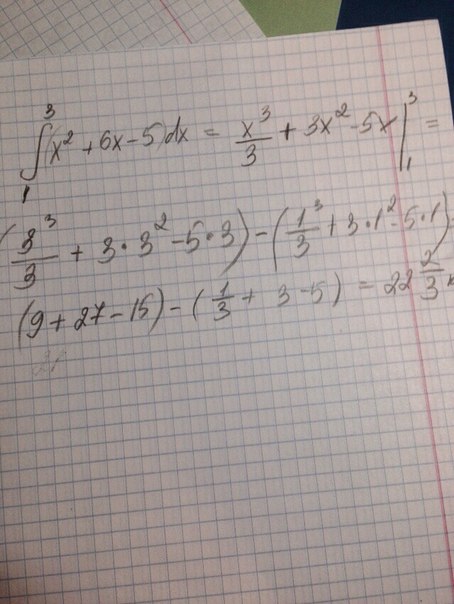 ∫₁³(x² + 6x - 5)dx = x³/3 + 3x² - 5x |₁³ =
(3³/3 + 3·3² - 5·3) - (1³/3 + 3·1² - 5·1)
(9 + 27 - 15) - (1/3 + 3 - 5) = 22 2/3